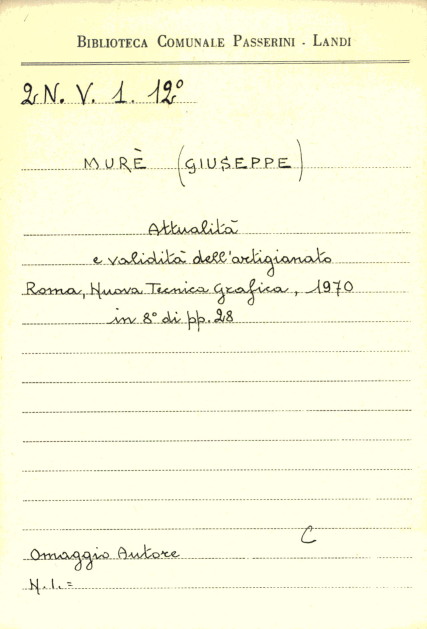 BIBLIOTECA COMUNALE PASSERINI - LANDI
2N. V. 1. 12°
MURÈ (GIUSEPPE)
Attualità
e validità dell'artigianato
Roma, Nuova Tecnica Grafica, 1970
in 8° di pp. 28
C
Omaggio Autore
N. I. =